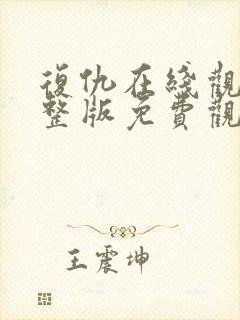 復仇在綫觀
整版免費觀
王震坤